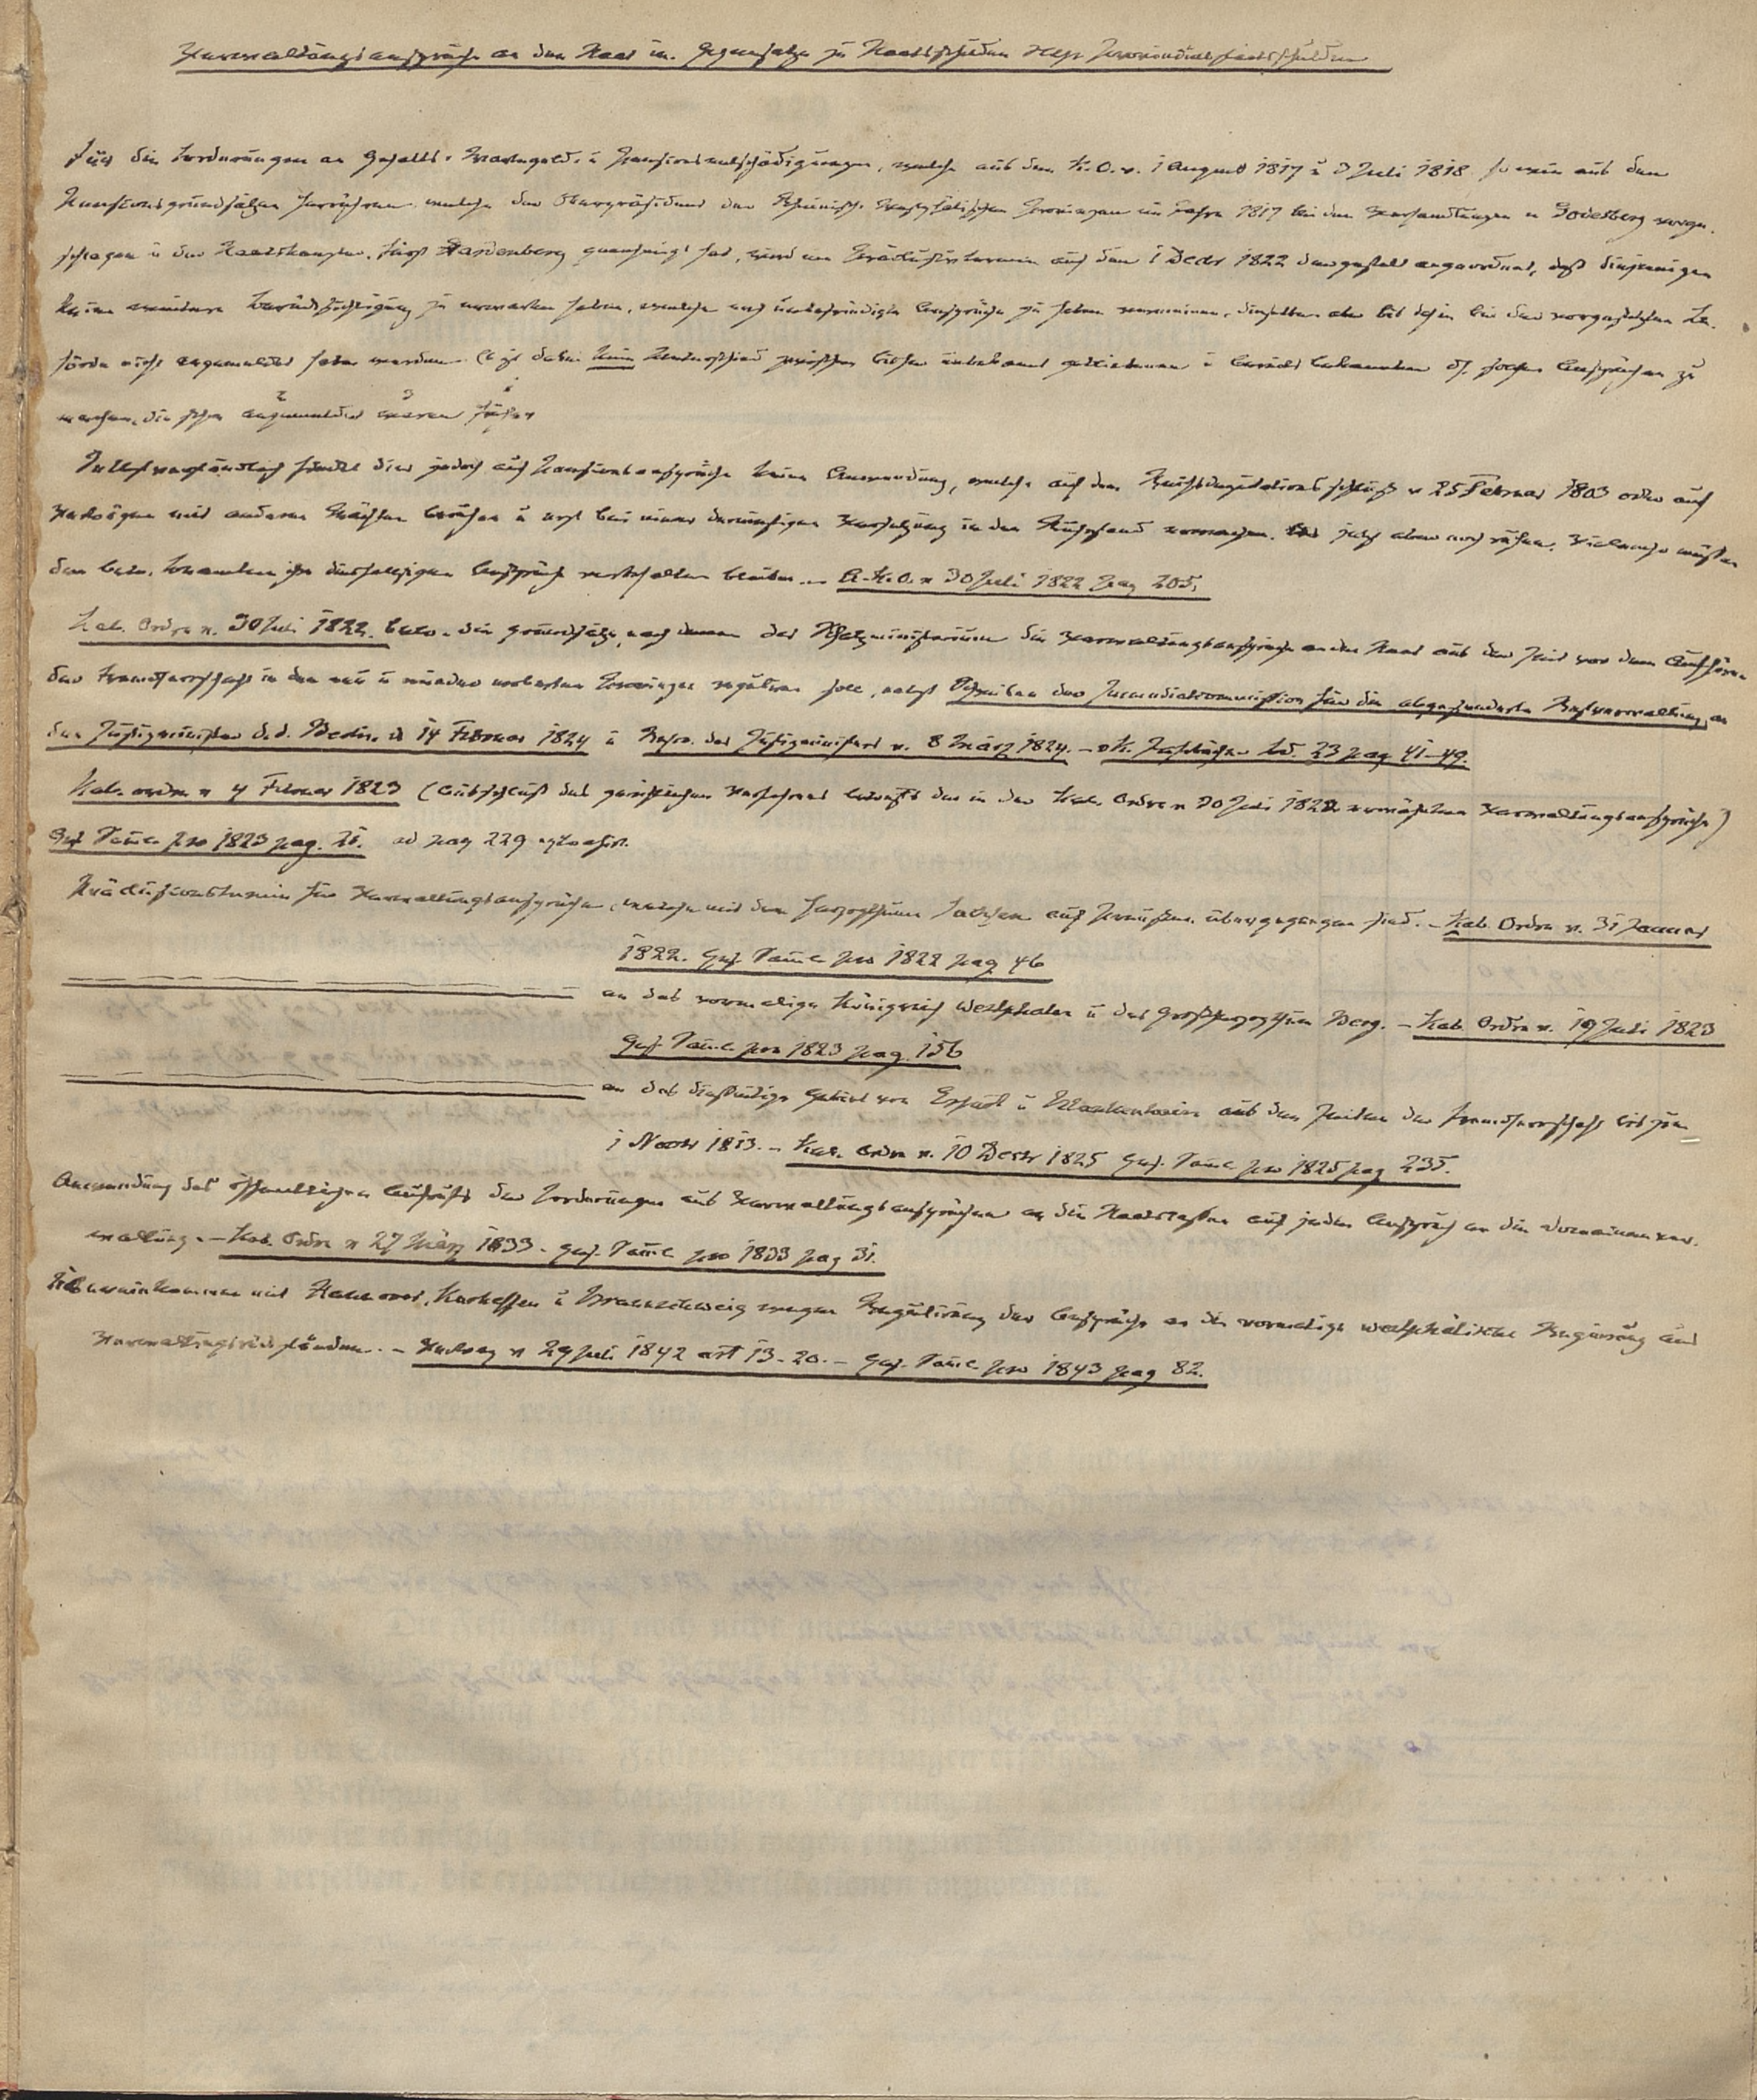 Verwaltungsansprüche an den Staat im Gegensatze zu Staatsschulden resp Provinzialstaatsschulden
Für die Forderungen an Gehalts, Wartegeld u Pensionsentschädigungen, welche aus den K.O. v. 1 August 1817 u 3 Juli 1818 so wie aus den
Pensionsgrundsätzen herrühren welche der Oberpräsident der Rheinisch Westphälischen Provinzen im Jahre 1817 bei den Verhandlungen in Godesberg vorge-
schlagen u der Staatskanzler Fürst Hardenberg genehmigt hat, wird ein Präclusivtermin auf den 1 Decbr 1822 dergestalt angeordnet, daß diejenigen
keine weitere Berücksichtigung zu erwarten haben, welche noch unbefriedigte Ansprüche zu haben vermeinen, dieselben aber bis dahin bei der vorgesetzten Be-
hörde nicht angemeldet haben werden. Es ist dabei kein Unterschied zwischen bisher unbekannt gebliebenen u bereits bekannten od. solchen Ansprüchen zu
machen, die schon angemeldet waren früher
2 3 1
Selbstverständlich findet dies jedoch auf Pensionsansprüche keine Anwendung, welche auf dem Reichsdeputationsschluß v 25 Februar 1803 oder auf
Verträgen mit anderen Mächten beruhen u erst bei einer künftigen Versetzung in den Ruhestand vorkommen, jetzt aber noch ruhen. Vielmehr müssen
den betr. Beamten ihre diesfallsigen Ansprüche vorbehalten bleiben. – A.K.O. v 30 Juli 1822 pag 205.
Kab. Ordre v. 30 Juli 1822. betr. die Grundsätze, nach denen das Schatzministerium die Verwaltungsansprüche an den Staat aus der Zeit vor dem Aufhören
der Fremdherrschaft in den neu u wieder eroberten Provinzen reguliren soll, nebst Schreiben der Immediatcommission für die abgesonderte Restverwaltung an
den Justizminister d.d. Berlin d 14 Februar 1824 u Rescr. des Justizministers v. 8 März 1824. – v K. Jahrbücher Bd. 23 pag 41–49.
Kab. ordre v 4 Februar 1823 (Ausschluß des gerichtlichen Verfahrens betreffs der in der Kab. Ordre v 30 Juli 1822 erwähnten Verwaltungsansprüche)
Ges. Saml. pro 1823 pag. 21. ad pag 229
Präclusionstermin für Verwaltungsansprüche, welche mit dem Herzogthum Sachsen auf Preußen übergegangen sind. – Kab. Ordre v. 31 Januar
1822. Ges. Saml. pro 1822 pag 46
an das vormalige Königreich Westphalen u das Großherzogthum Berg. – Kab. Ordre v. 19 Juli 1823
Ges. Saml. pro 1823 pag. 156
an das diesseitige Gebiet von Erfurt u Blankenhain aus den Zeiten der Fremdherrschaft bis zum
1 Novbr 1813. – Kab. Ordre v. 10 Decbr 1825 Ges. Saml pro 1825 pag 235.
Anwendung des öffentlichen Aufrufs der Forderungen aus Verwaltungsansprüchen an die Staatskassen auf jeden Anspruch an die Domainenver-
waltung. – Kab. Ordre v 27 März 1833. Ges. Saml pro 1833 pag 31.
Uebereinkommen mit Hannover, Kurhessen u Braunschweig wegen Regulirung der Ansprüche an die vormalige westphälische Regierung aus
Verwaltungsrückständen. – Vertrag v 29 Juli 1842 art 13–20. – Ges. Saml. pro 1843 pag 82.